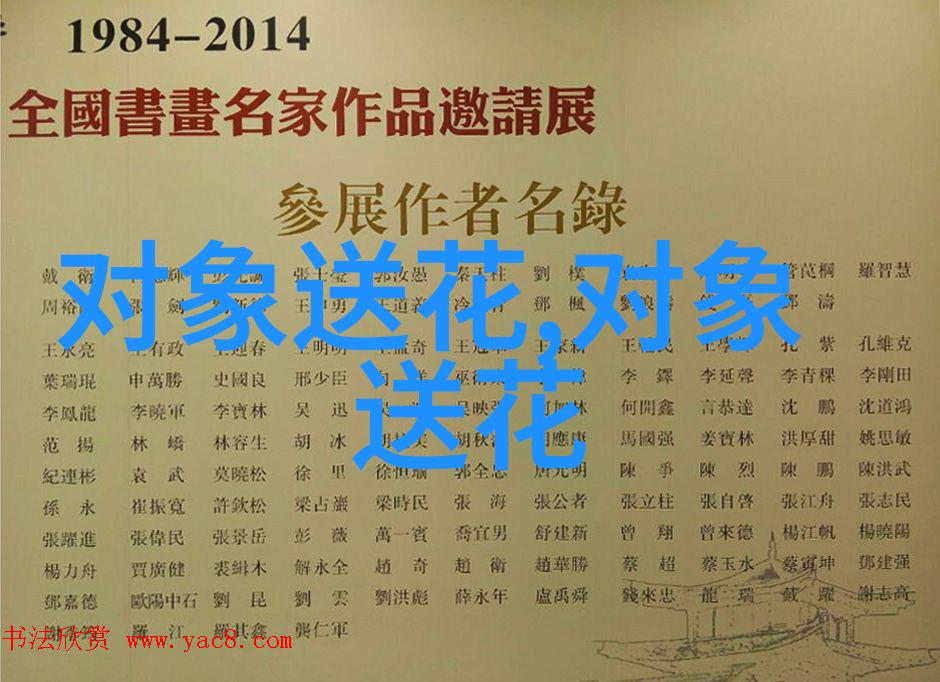 1984-2014
全國書畫名家作品邀請展
參展作者名錄
对象送花,对象
送花
戴 衛 張士瑩 郭汝愚 秦天柱 劉 樸 管苠棡 羅智慧
周裕 張 劍 王申勇 王道義 鄧 楓 鄧 濤
王永亮 王有政 王迎春 王明明 王孟奇 王冠軍 王家新 孔 紫 孔維克
葉瑞琨 申萬勝 史國良 邢少臣 李 鐸 李延聲 李青稞 李剛田
李鳳龍 李曉軍 李寶林 吳 迅 何開鑫 言恭達 沈 鵬 沈道鴻
范 揚 林 嶠 林容生 胡 冰 胡應康 馬國强 姜寶林 洪厚甜 姚思敏
紀連彬 袁 武 莫曉松 徐 里 徐恒瑜 郭全忠 唐允明 陳 爭 陳 烈 陳 鵬 陳洪武
孫 永 崔振寬 許欽松 梁占巖 梁時民 張 海 張公者 張立柱 張自啓 張江舟 張志民
張躍進 張偉民 張景岳 彭 薇 萬一賓 喬宜男 舒建新 曾 翔 曾來德 楊江帆 楊曉陽
楊力舟 賈廣健 裘緝木 解永全 趙 奇 趙 衛 趙華勝 蔡 超 蔡玉水 蔡寅坤 鄧建强
鄧嘉德 歐陽中石 劉 昆 劉 雲 劉洪彪 薛永年 盧禹舜 錢來忠 龍 瑞 戴 躍 謝志高
羅 江 羅其鑫 龔仁軍
书法欣赏 www.yac8.com